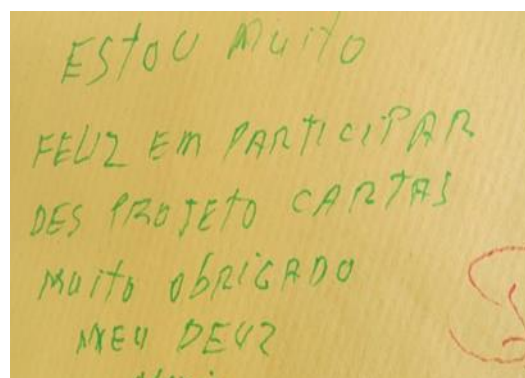 ESTOU MUITO
FELIZ EM PARTICIPAR
DES PROJETO CARTAS
MUITO OBRIGADO
MEU DEUZ